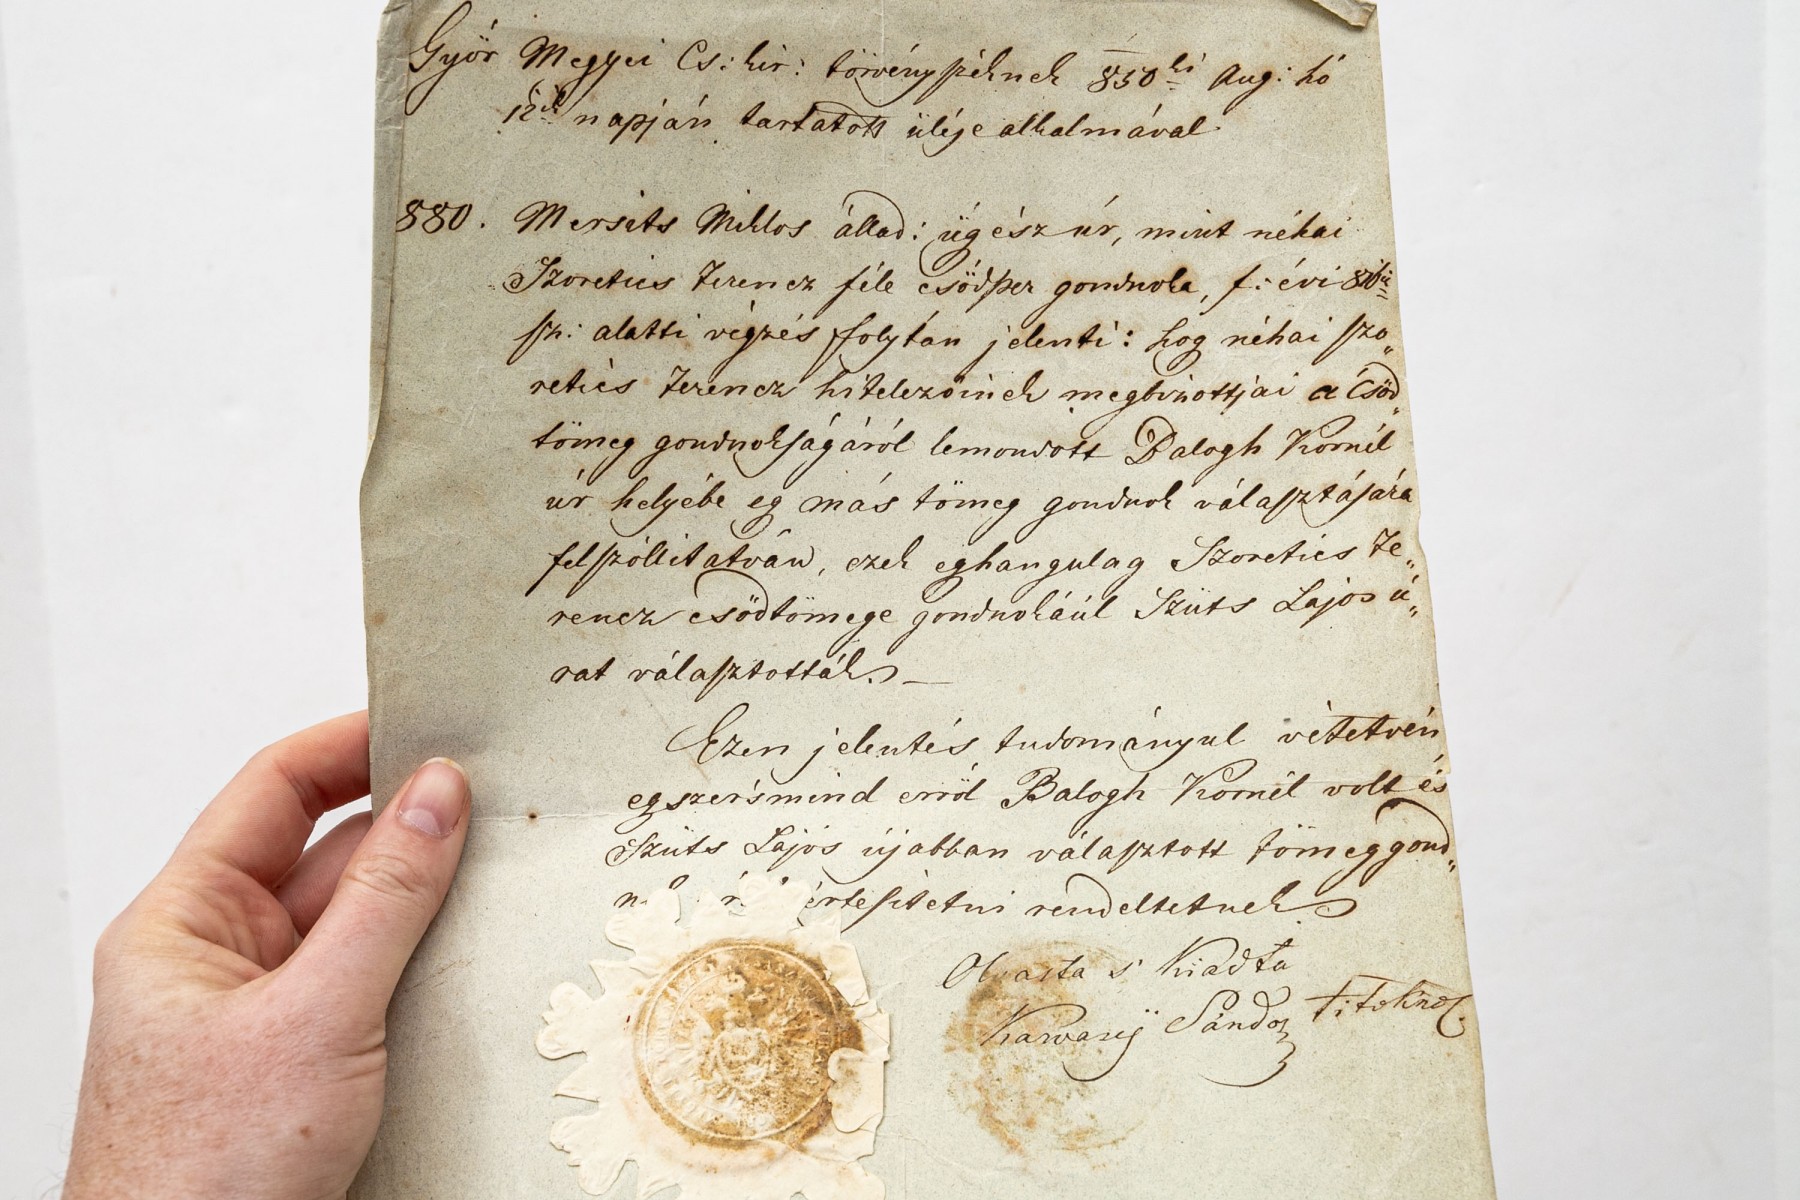 Győr Megyei Cs: kir: törvényszéknek 850ki Aug: hó
12ik napján tartatott ülése alkalmával
880. Mersits Miklos állad: ügész úr, mint néhai
Szoretics Ferencz féle csödper gondnoka, f: évi
sz: alatti végzés folytán jelenti: hog néhai Szo„
retics Ferencz hitelezőinek megbizottjai a Csőd„
tömeg gondnokságáról lemondott Balogh Kornél
úr helyébe eg más tömeg gondnok választására
felszóllitatván, ezek eghangulag Szoretics Fe„
rencz csődtömege gondnokáúl Szüts Lajos ú„
rat választották. —
Ezen jelentés tudományul vétetvén
egszersmind erről Balogh Kornél volt és
Szüts Lajos újabban választott tömeggond„
értesitetni rendeltetnek
Olvasta s' Kiadta
Karvasÿ Sándor